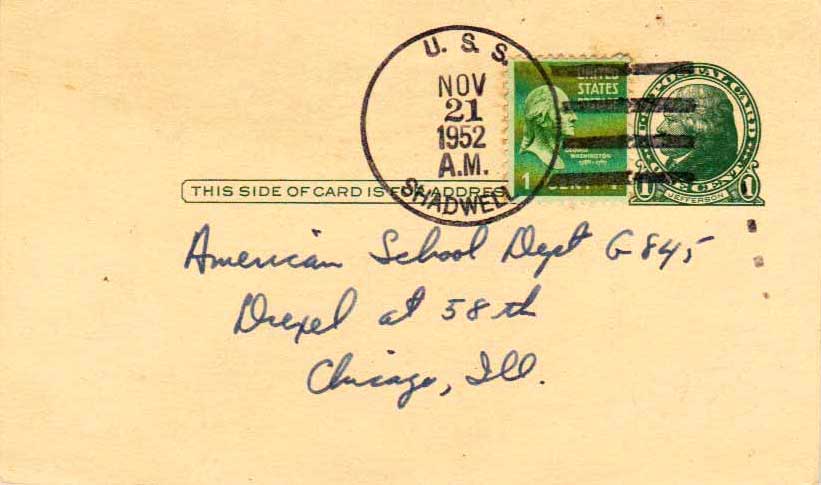 U.S.S.
NOV
21
1952
A.M.
SHADWELL
UNITED
STATES
GEORGE
WASHINGTON
1789-1797
1 CENT 1
U.S. POSTAL CARD
1 ONE CENT 1
JEFFERSON
THIS SIDE OF CARD IS FOR ADDRESS
American School Dept G 845
Drexel at 58th
Chicago, Ill.